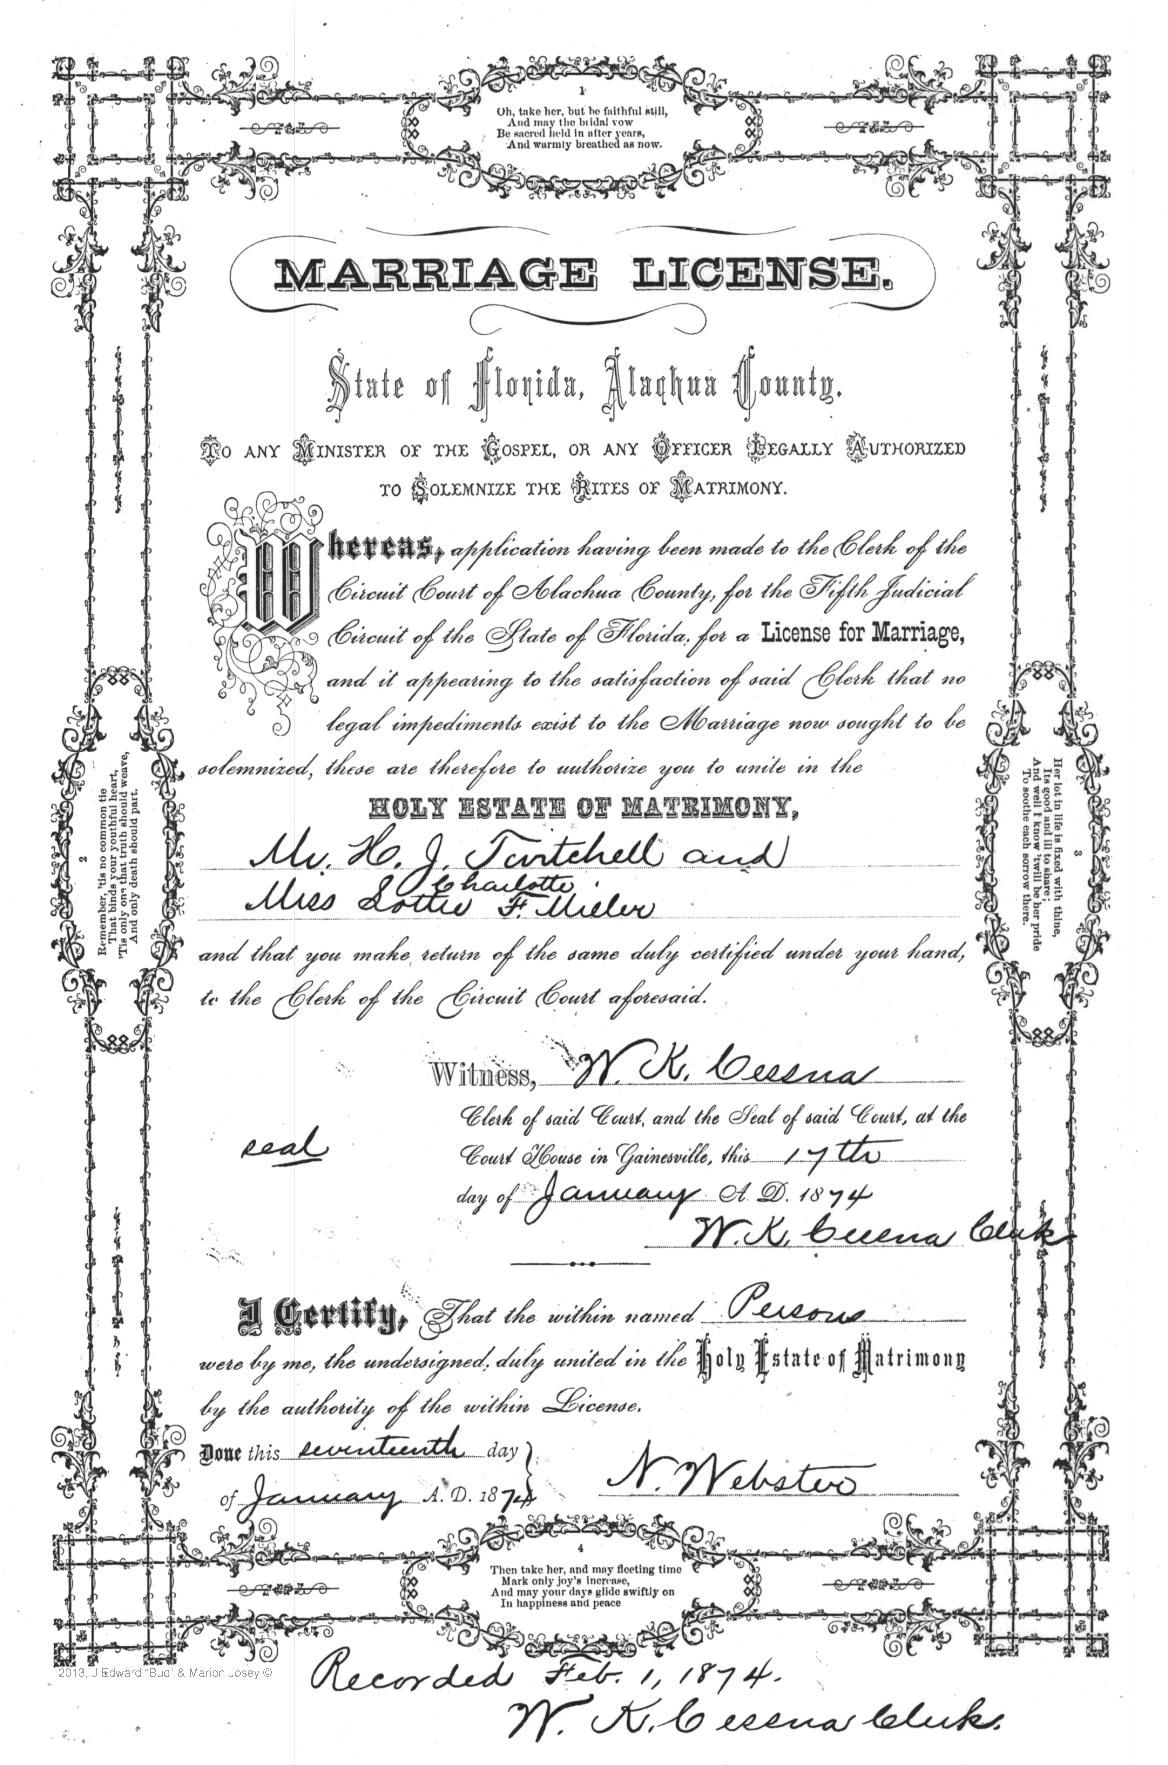 1
Oh, take her, but be faithful still,
And may the bidal vow
Be sacred held in after years,
And warmly breathed as now.
MARRIAGE LICENSE.
State of Florida, Alachua County.
TO ANY MINISTER OF THE GOSPEL, OR ANY OFFICER LEGALLY AUTHORIZED
TO SOLEMNIZE THE RITES OF MATRIMONY.
Whereas, application having been made to the Clerk of the
Circuit Court of Alachua County, for the Fifth Judicial
Circuit of the State of Florida, for a License for Marriage,
and it appearing to the satisfaction of said Clerk that no
legal impediments exist to the Marriage now sought to be
solemnized, these are therefore to authorize you to unite in the
HOLY ESTATE OF MATRIMONY,
Mr. H. J. Twitchell and
Charlotte
Miss Lottie F. Miller
and that you make return of the same duly certified under your hand,
to the Clerk of the Circuit Court aforesaid.
2
Remember, 'tis no common tie
That binds your youthful heart,
'Tis only one that truth should weave,
And only death should part.
3
Her lot in life is fixed with thine,
Its good and ill to share;
And well I know 'twill be her pride
To soothe each sorrow there.
Witness, W. K. Cessna
Clerk of said Court, and the Seal of said Court, at the
seal
Court House in Gainesville, this 17th
day of January A. D. 1874
W. K. Cessna Clerk
I Certify, That the within named Persons
were by me, the undersigned, duly united in the Holy Estate of Matrimony
by the authority of the within License.
Done this seventeenth day
of January A. D. 1874
N. Webster
4
Then take her, and may fleeting time
Mark only joy's increase,
And may your days glide swiftly on
In happiness and peace
2013, J Edward "Bud" & Marion Josey ©
Recorded Feb. 1, 1874.
W. K. Cessna Clerk.